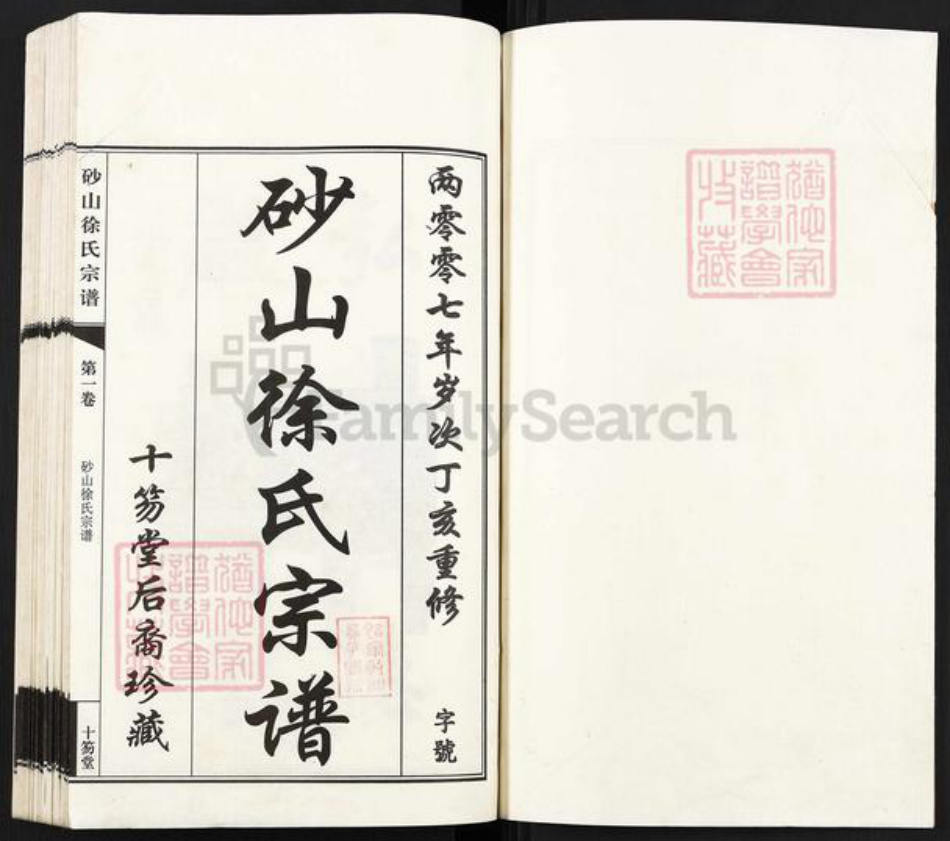 猶他家
譜學會
收藏
两零零七年岁次丁亥重修
字號
砂山徐氏宗谱
十笏堂后裔珍藏
猶他家
譜學會
收藏
砂山徐氏宗谱
第一卷
砂山徐氏宗谱
十笏堂
FamilySearch